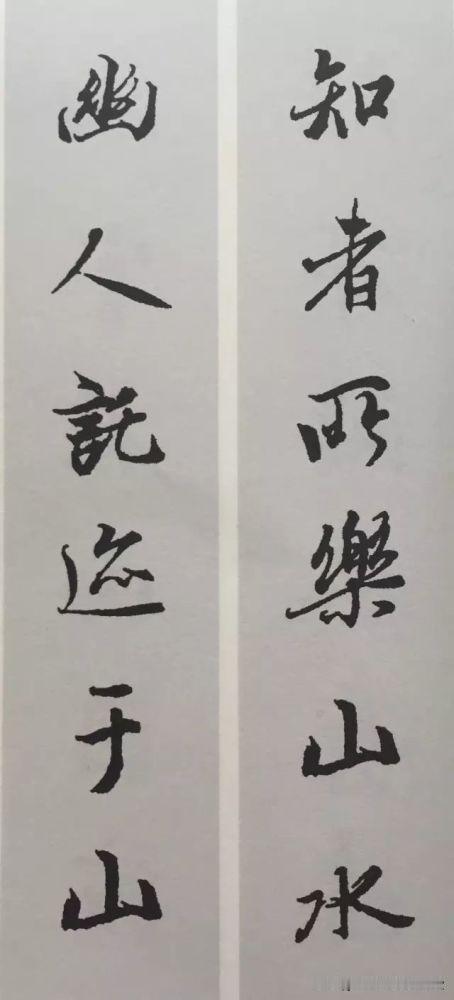 知者所樂山水
幽人託迹于山